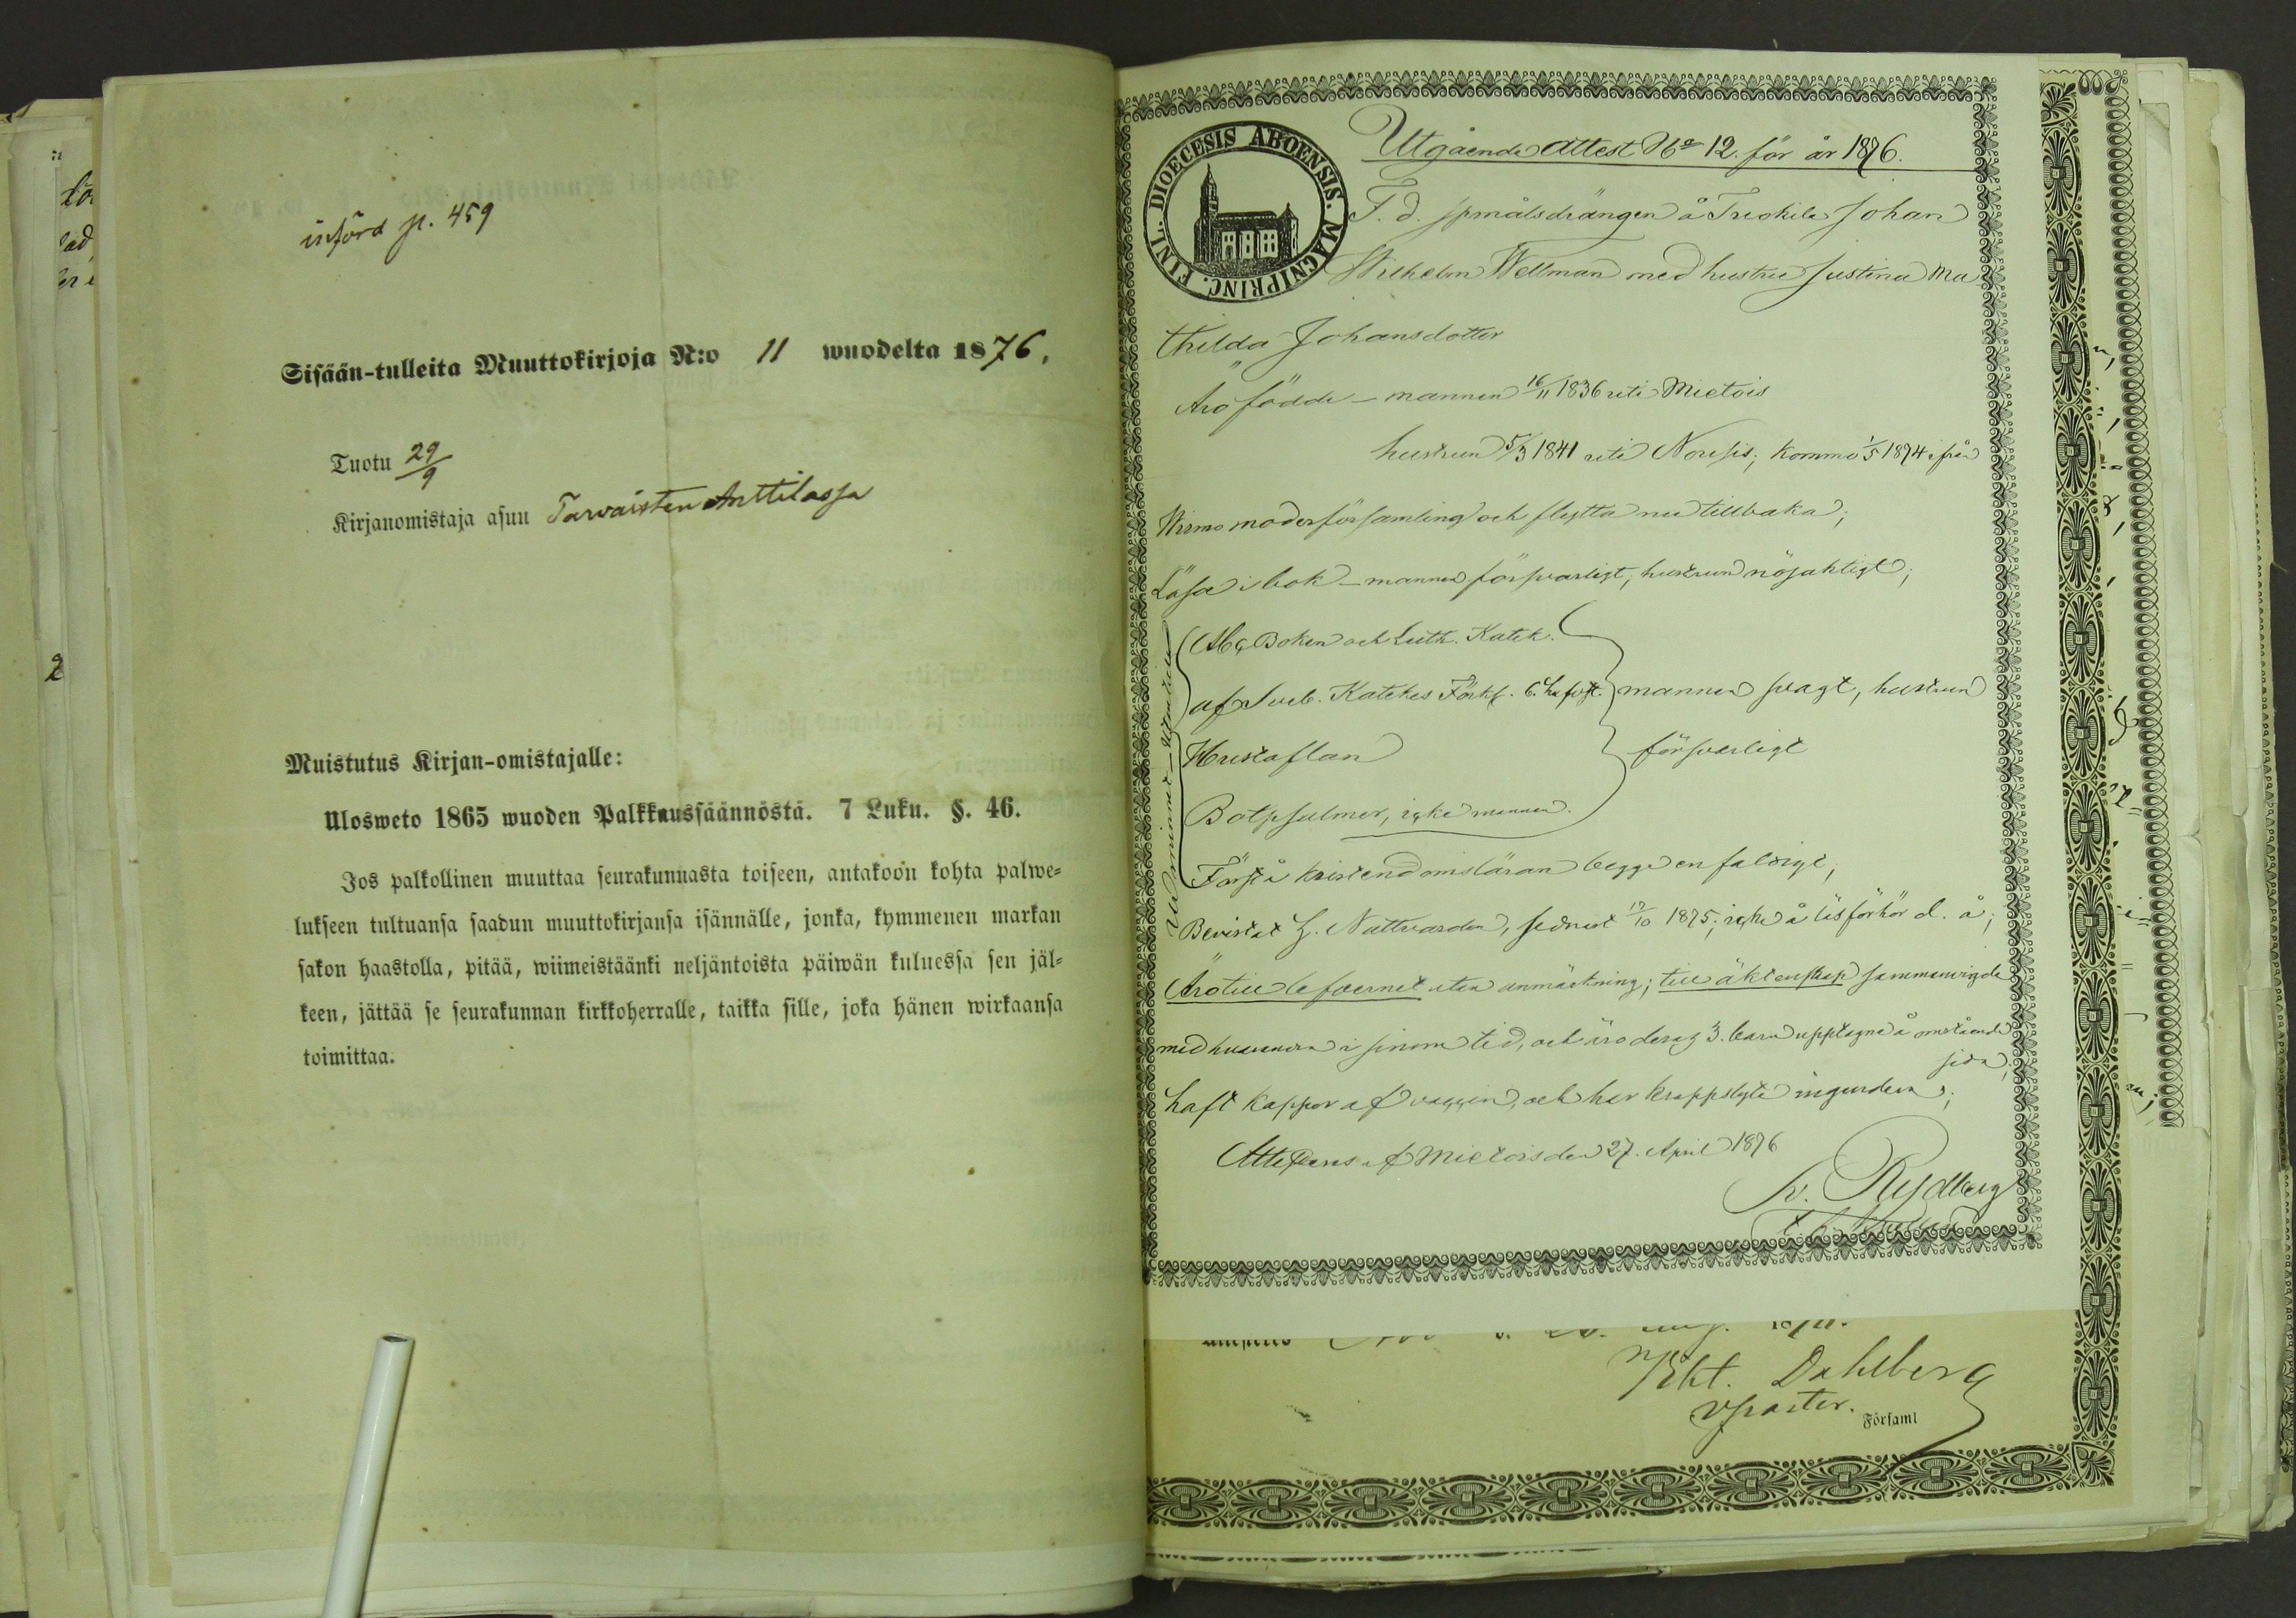 införd p. 459
Sisään-tulleita Muuttokirjoja N:o 11 wuodelta 1876.
Tuotu 29/9
Kirjanomistaja asuu Tarvaisten Anttilassa
Muistutus Kirjan-omistajalle:
Ulosweto 1865 wuoden Palkkaussäännöstä. 7 Luku. §. 46.
Jos palkollinen muuttaa seurakunnasta toiseen, antakoon kohta palwe-
lukseen tultuansa saadun muuttokirjansa isännälle, jonka, kymmenen markan
sakon haastolla, pitää, wiimeistäänki neljäntoista päiwän kuluessa sen jäl-
keen, jättää se seurakunnan kirkkoherralle, taikka sille, joka hänen wirkaansa
toimittaa.
FINL. DIOECESIS ABOENSIS. MAGNIPRINC.
Utgående Attest No 12. för år 1876.
F. d. spmålsdrängen å Johan
Wilhelm Wellman med hustru Justina Ma-
thilda Johansdotter
Äro födde – mannen 16/11 1836 uti Mietois
hustrun 5/3 1841 uti Nousis; kommo 1/5 1874 ifrån
Wirmo moderförsamling och flytta nu tillbaka;
Läsa i bok – mannen försvarligt, hustrun nöjaktigt;
Utur minnet – Utantill
Abc Boken och Luth. Katek.
af Sveb. Katekes Förkl. 6. hufvst. mannen svagt, hustrun
Hustaflan försvarligt
Botpsalmer, icke mannen.
Förstå kristendomsläran begge enfaldigt;
Bevistat H. Nattvarden, sednast 17/10 1875; icke å läsförhör d. å;
Äro till lefvernet utan anmärkning; till äktenskap sammanvigde
med hvarandra i sinom tid, och äro deras 3. barn upptagne å omstående
sida;
haft koppor af vaccin, och har kroppslyte ingendera;
Attesteras af Mietois den 27. April 1876
K. Rydberg
Dahlberg
v. pastor.
Församl